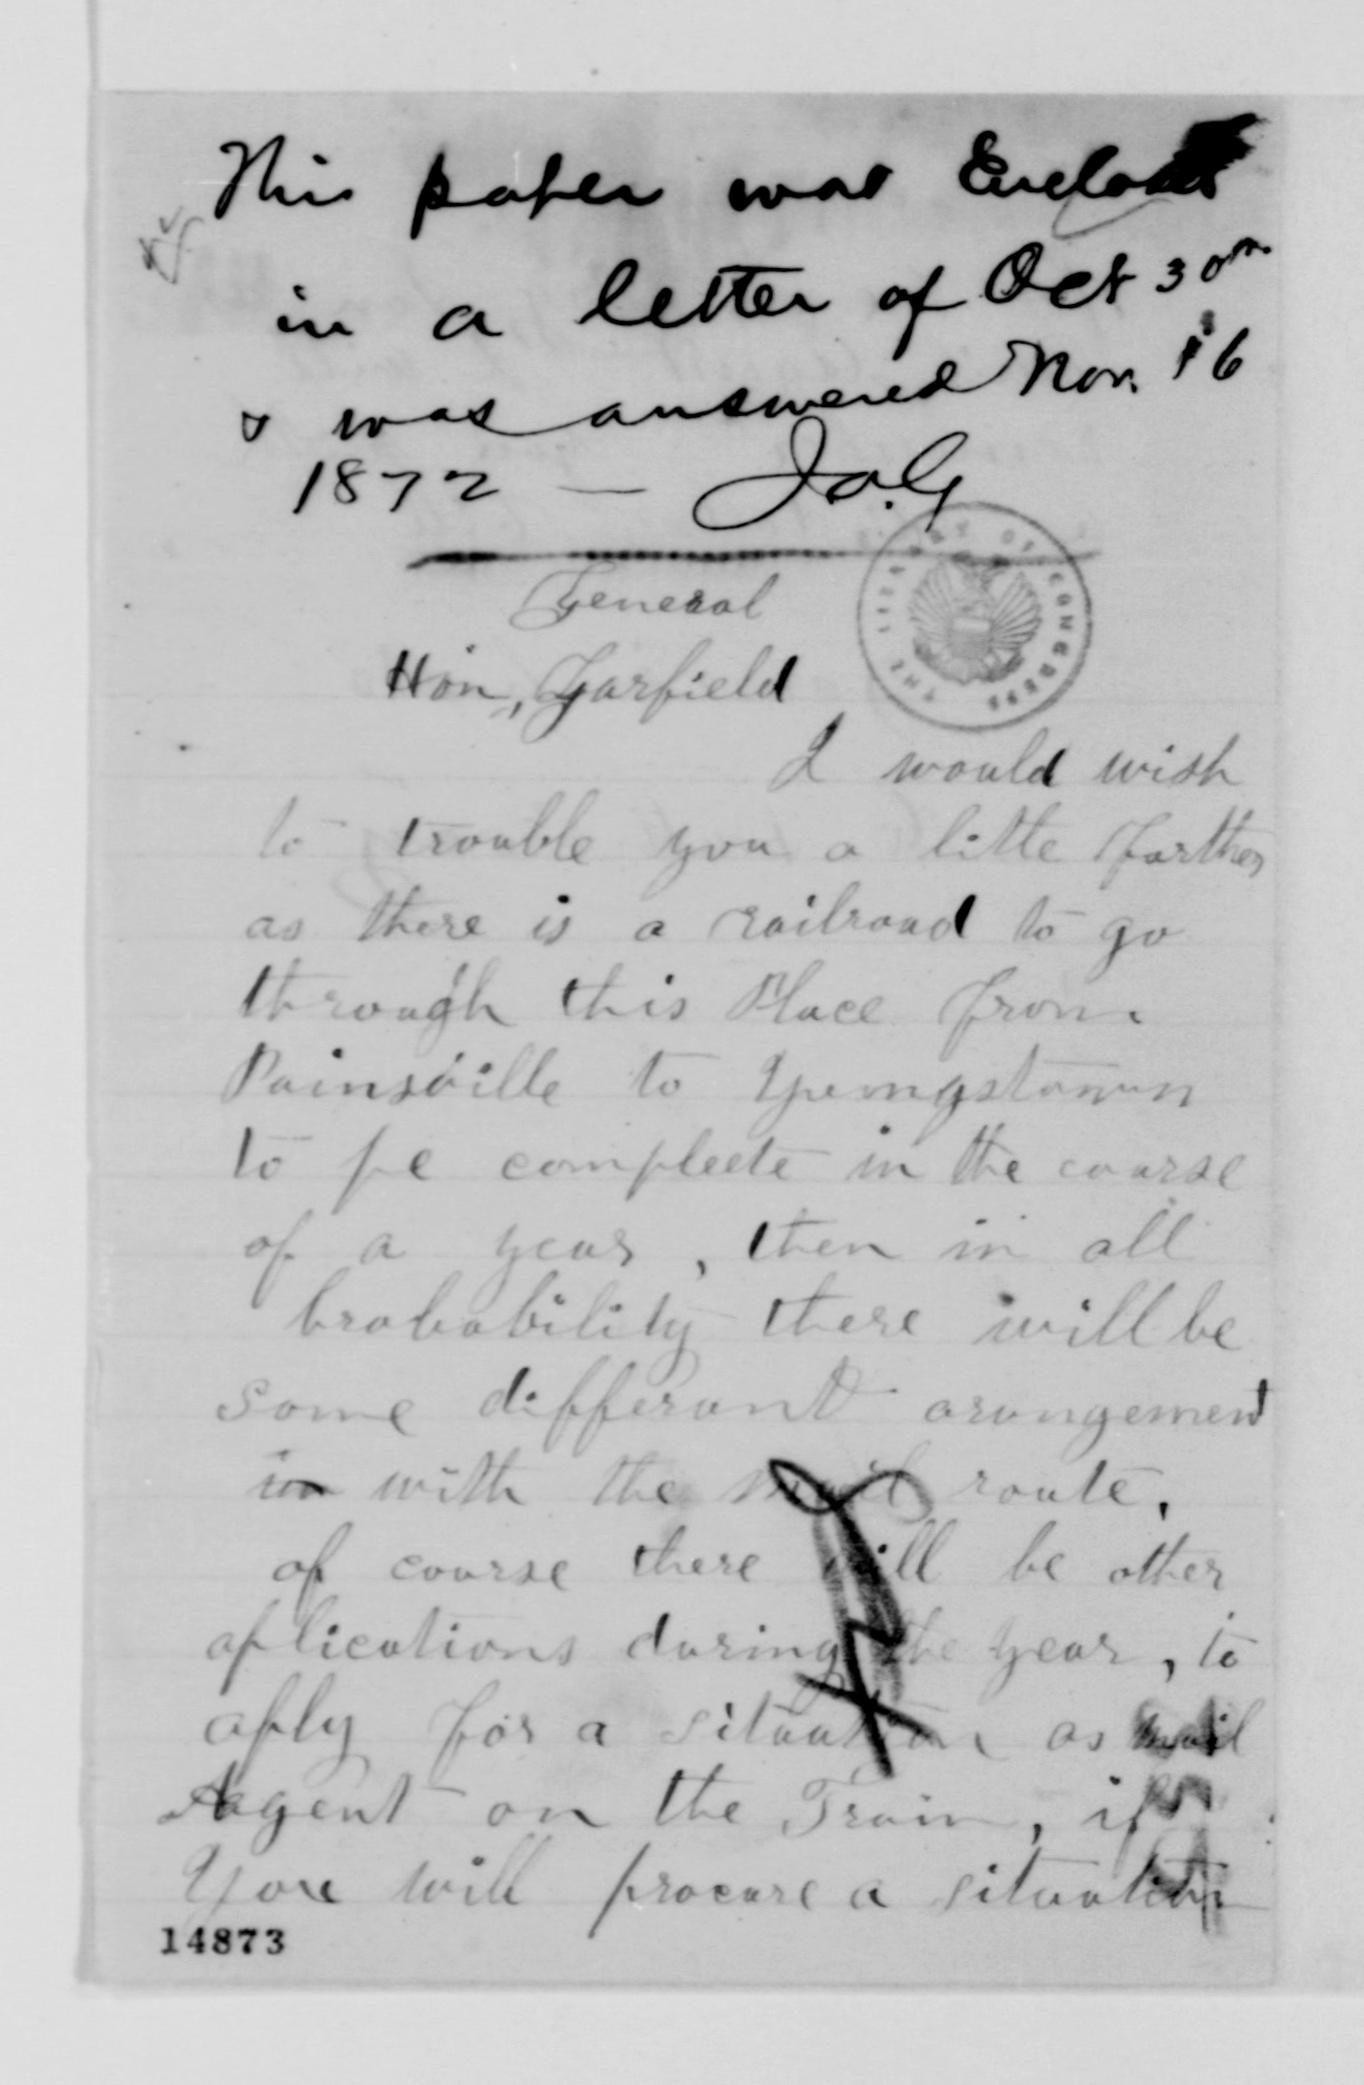 This paper was Enclosed
in a letter of Oct 30th
& was answered Nov. 16
1872 — J.A.G
THE LIBRARY OF CONGRESS
General
Hon, Garfield
I would wish
to trouble you a litte farther
as there is a railroad to go
through this Place from
Painsville to Youngstown
to be compleete in the course
of a year, then in all
probability there will be
some differant arangement
in with the mail route.
of course there will be other
aplications during the year, to
aply for a situation as mail
Agent on the Train, if
You will procure a situation
14873